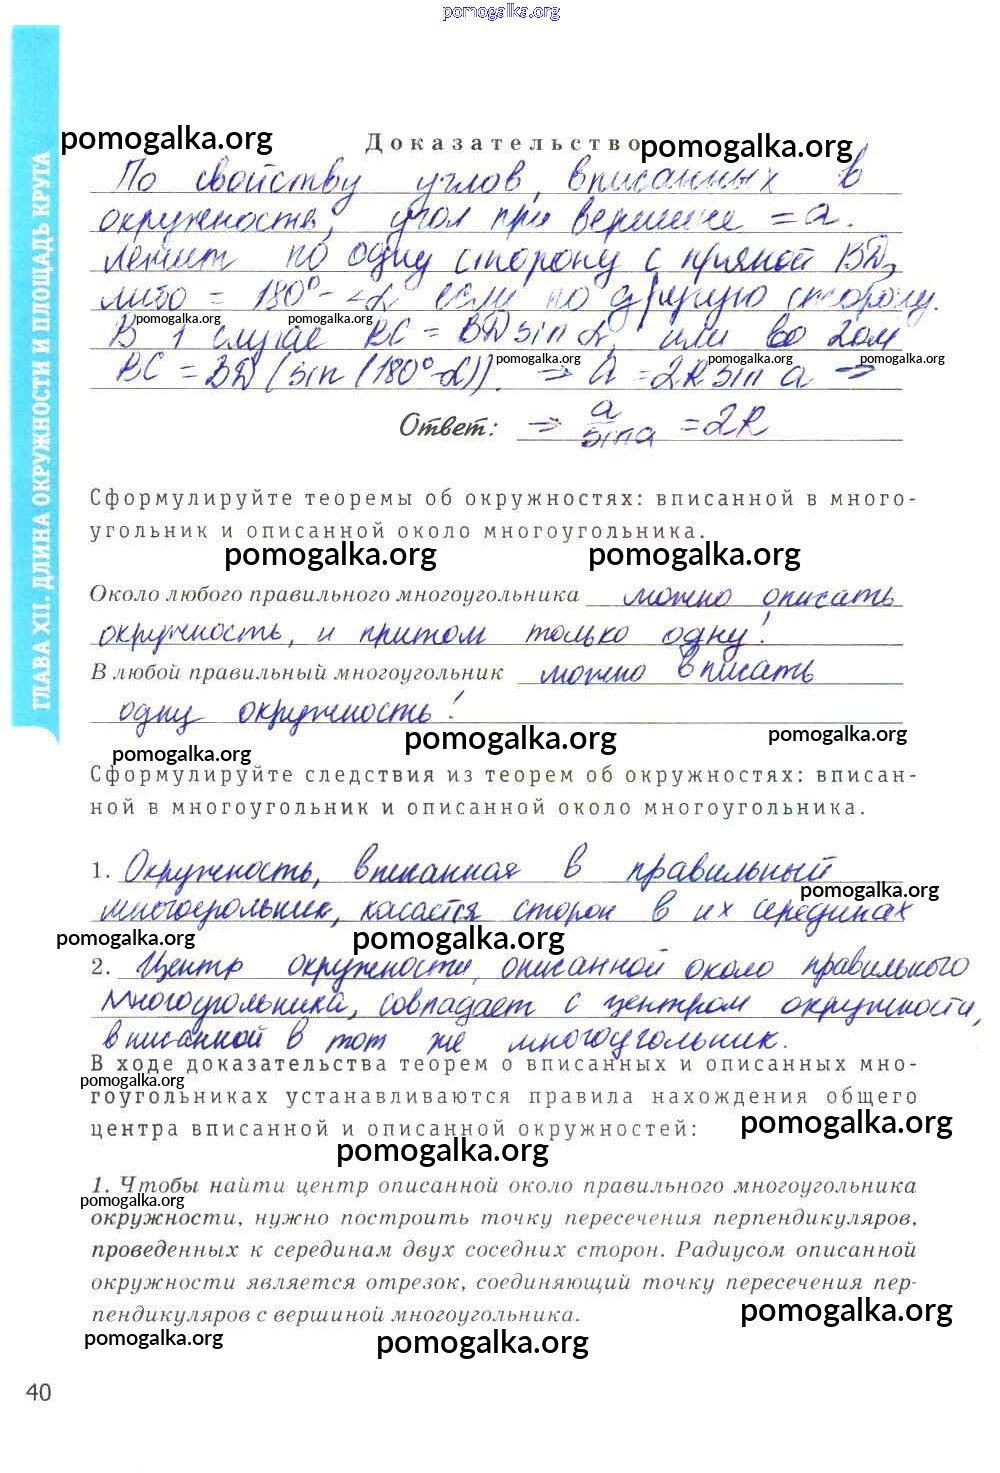 pomogalka.org
ГЛАВА XII. ДЛИНА ОКРУЖНОСТИ И ПЛОЩАДЬ КРУГА
pomogalka.org
Доказательство
pomogalka.org
По свойству углов, вписанных в
окружность, угол при вершине = a.
лежит по одну сторону с прямой BD,
либо = 180° - ∠α если по другую сторону.
pomogalka.org pomogalka.org
В 1 случае BC = BD sin α, или во 2ом
pomogalka.org pomogalka.org pomogalka.org
BC = BD (sin (180°-α)). => a = 2R sin a =>
Ответ: => a/sin a = 2R
Сформулируйте теоремы об окружностях: вписанной в много-
угольник и описанной около многоугольника.
pomogalka.org pomogalka.org
Около любого правильного многоугольника можно описать
окружность, и притом только одну!
В любой правильный многоугольник можно вписать
одну окружность!
pomogalka.org pomogalka.org pomogalka.org
Сформулируйте следствия из теорем об окружностях: вписан-
ной в многоугольник и описанной около многоугольника.
1. Окружность, вписанная в правильный
pomogalka.org
многоугольник, касается сторон в их серединах
pomogalka.org pomogalka.org
2. Центр окружности, описанной около правильного
многоугольника, совпадает с центром окружности,
вписанной в тот же многоугольник.
В ходе доказательства теорем о вписанных и описанных мно-
pomogalka.org
гоугольниках устанавливаются правила нахождения общего
pomogalka.org
центра вписанной и описанной окружностей:
pomogalka.org
1. Чтобы найти центр описанной около правильного многоугольника
pomogalka.org
окружности, нужно построить точку пересечения перпендикуляров,
проведенных к серединам двух соседних сторон. Радиусом описанной
окружности является отрезок, соединяющий точку пересечения пер-
пендикуляров с вершиной многоугольника.
pomogalka.org
pomogalka.org pomogalka.org
40